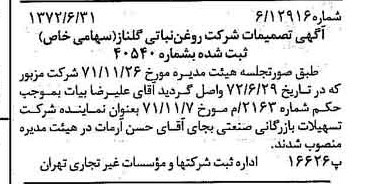 شماره ۶/۱۲۹۱۶ ۱۳۷۲/۶/۳۱
آگهی تصمیمات شرکت روغن‌نباتی گلناز(سهامی خاص)
ثبت شده بشماره ۴۰۵۴۰
طبق صورتجلسه هیئت مدیره مورخ ۷۱/۱۱/۲۶ شرکت مزبور
که در تاریخ ۷۲/۶/۲۹ واصل گردید آقای علیرضا بیات بموجب
حکم شماره ۲۱۶۳/م مورخ ۷۱/۱۱/۷ بعنوان نماینده شرکت
تسهیلات بازرگانی صنعتی بجای آقای حسن آرمات در هیئت مدیره
منصوب شدند.
پ۱۶۶۲۶ اداره ثبت شرکتها و مؤسسات غیر تجاری تهران